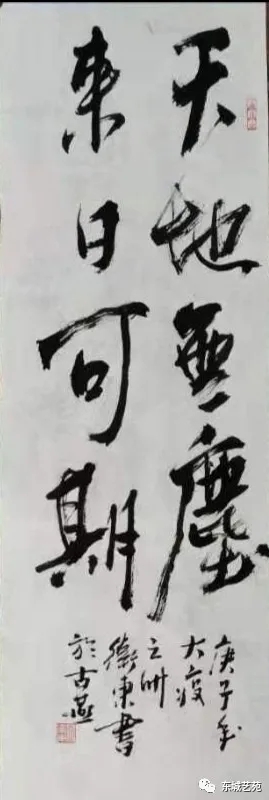 天地無塵
來日可期
庚子年
大疫
之時
衛東書
於古燕
东城艺苑